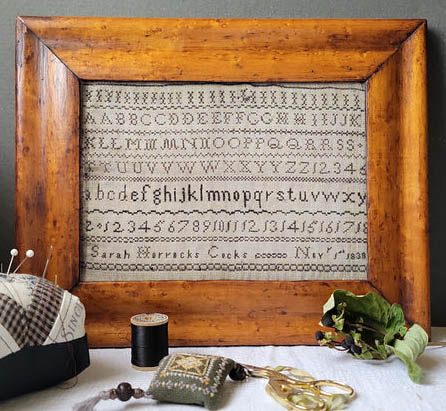 AABBCCDDEEFFGGHIIJJK
KLLMMMNNOOPPQQRRSS
TTUUVVWWXXYYZZ123 46
abcdefghijklmnopqrstuvwxy
z 12345678910111213141516171
Sarah Horrocks Cocks Nov